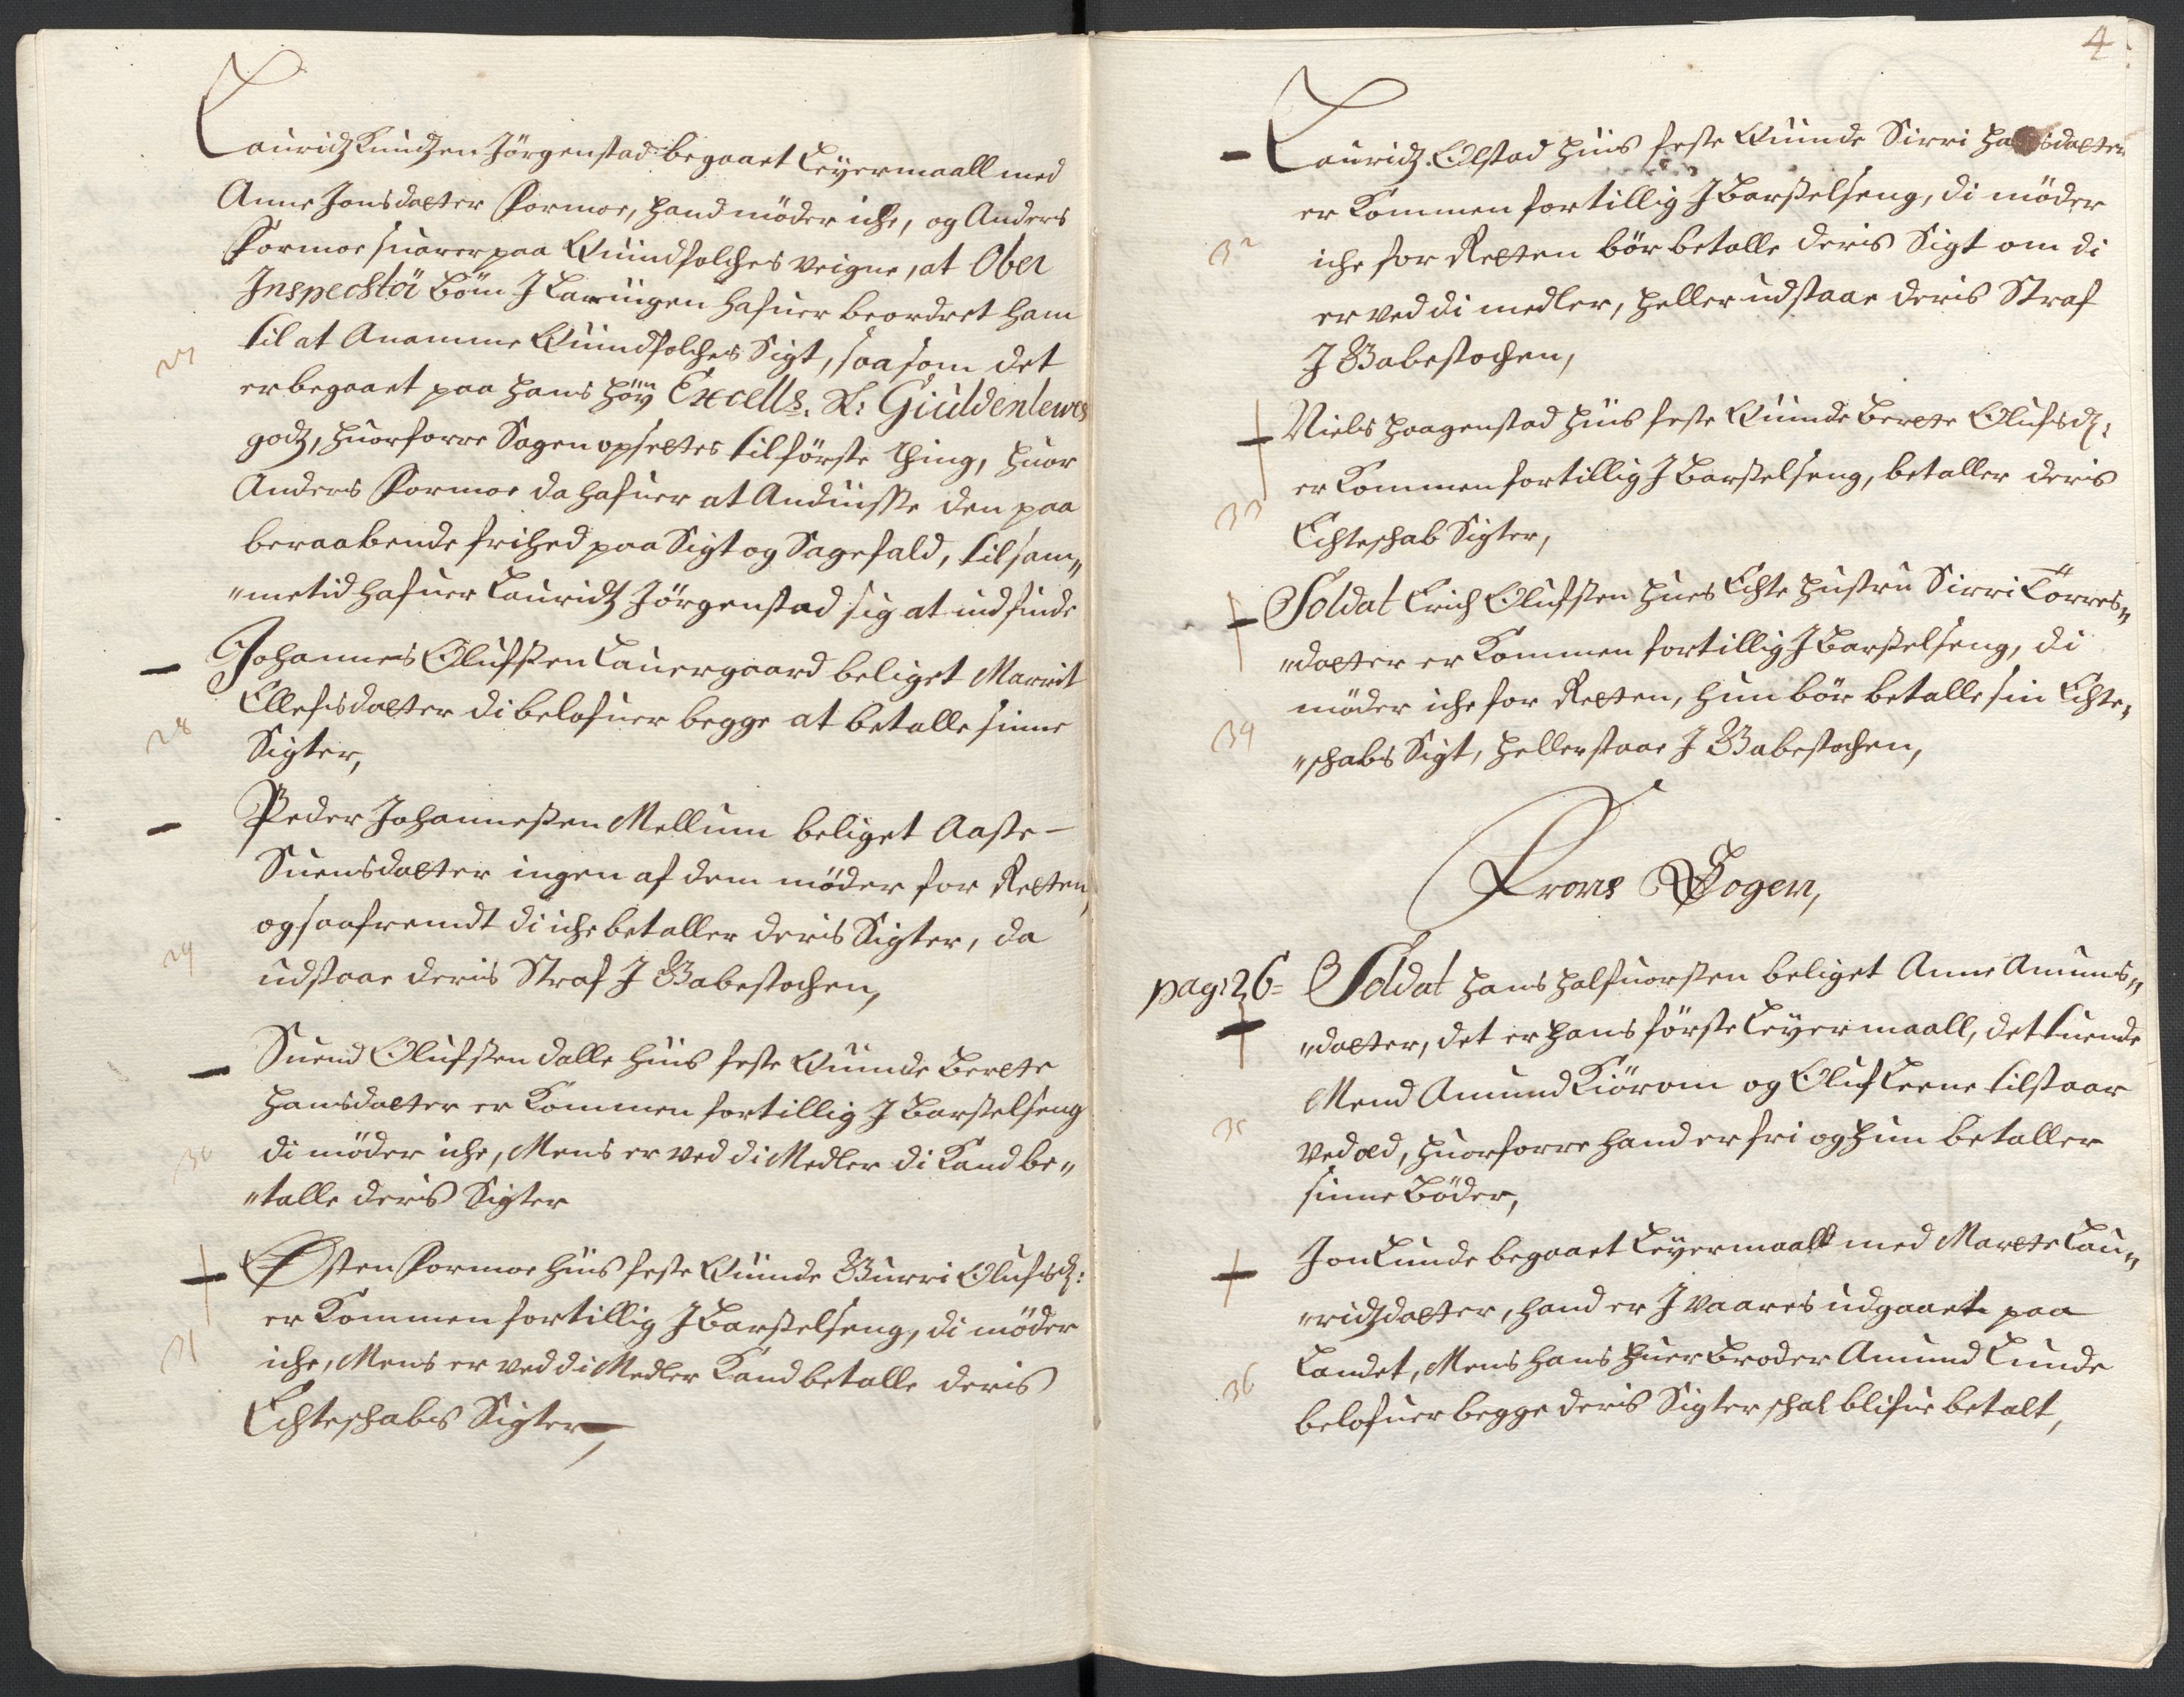 Lauridz Knudzen Jörgenstad begaaet Leyermaall med
Anne Jonsdatter Formoe, hand möder iche, og Anders
Formoe suarer paa Quindfolches veigne, at Ober
Inspechtör Böm J Laurüigen hafuer beordret ham
til at Anamme Quindfolches Sigt, saa som det
27
er begaaet paa hans höy Excells. H: Güldenlewes
godz, huorforre Sagen opsettes til förste thing, huor
Anders Formoe da hafuer at Anduisse den paa
beraabende frihed paa Sigt og Sagefald, til sam„
„metid hafuer Lauridz Jörgenstad sig at indfinde
Johannes Olufssen Lauergaard beliget Marrit
Ellefsdatter di belofuer begge at betalle sinne
28
Sigter,
Peder Johannessen Mellum beliget Aaste
Suensdatter ingen af dem möder for Retten,
og saafremdt di iche betaller deris Sigter, da
29
udstaae deris Straf J Gabestochen,
Suend Olufssen Dalle huis feste Quinde Berete
Hansdatter er Kommen fortillig J Barsselseng
di möder iche, Mens er ved di Medler di Kand be„
30
„talle deris Sigter
Østen Formoe huis feste Quinde Gurri Olufsdz:
er Kommen fortillig J Barsselseng, di möder
31
iche, Mens er ved di Medler Kand betalle deris
Echteschabs Sigter,
4
Lauridz Olstad huis feste Quinde Sirri Hansdatter
er Kommen fortillig J Barsselseng, di möder
32
iche for Retten bör betalle deris Sigt om di
er ved di medler, heller udstaae deris Straf
J Gabestochen,
Niels Haagenstad huis feste Quinde Berete Olufsdz:
er Kommen fortillig J Barsselseng, betaller deris
33
Echteschab Sigter,
Soldat Erich Olufssen hues Echte hustru Sirri Törres„
„datter er Kommen fortillig J Barsselseng, di
möder iche for Retten, hun bör betalle sin Echte„
34
„schabs Sigt, heller staae J Gabestochen,
Frons Sogen,
pag: 26= Soldat Hans Halfuorssen beliget Anne Amuns„
„datter, det er hans förste Leyermaall, det tuende
Mend Amund Kiörom og Oluf Leene tilstaar
35
ved æd, huorforre hand er fri og hun betaller
sinne Böder,
Jon Lunde begaaet Leyermaall med Marete Lau„
„ridzdatter, hand er J vaares udgaaet paa
Landet, Mens hans huer Broder Amund Lunde
36
belofuer begge deris Sigter schal blifue betalt,